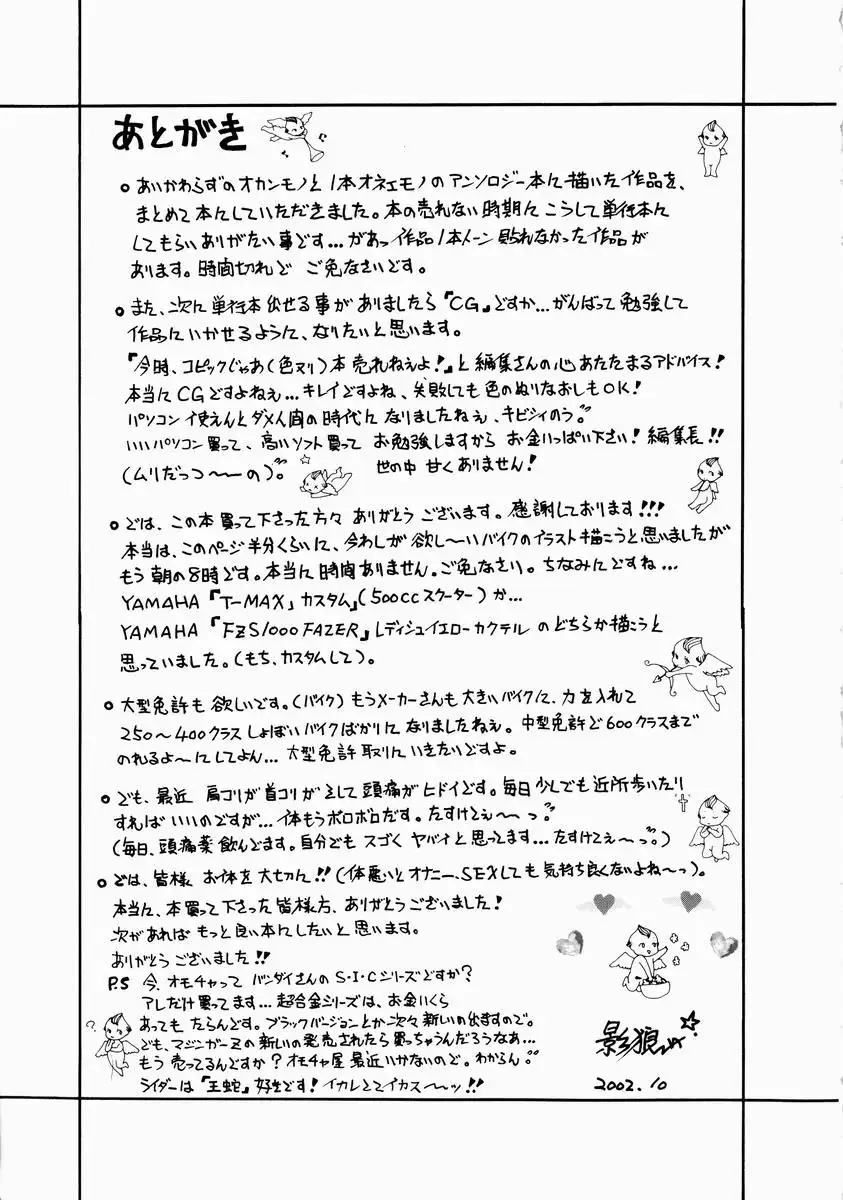 あとがき
○ あいかわらずのオカンモノと1本オネェモノのアンソロジー本に描いた作品を、
まとめて本にしていただきました。本の売れない時期にこうして単行本に
してもらいありがたい事です…があっ作品1本トーン貼れなかった作品が
あります。時間切れで ご免なさいです。
○ また、次に単行本出せる事がありましたら『CG』ですか…がんばって勉強して
作品にいかせるように、なりたいと思います。
『今時、コピックじゃあ(色ヌリ)本売れねぇよ!』と編集さんの心あたたまるアドバイス!
本当にCGですよねぇ…キレイですよね、失敗しても色のぬりなおしもOK!
パソコン使えんとダメ人間の時代になりましたねぇ、キビシイのう。
いいパソコン買って、高いソフト買って お勉強しますから お金いっぱい下さい!編集長!!
(ムリだっつ〜〜の)。 世の中 甘くありません!
○ では、この本買って下さった方々 ありがとうございます。感謝しております!!!
本当は、このページ半分くらいに、今わしが欲し〜いバイクのイラスト描こうと思いましたが
もう朝の8時です。本当に時間ありません。ご免なさい。ちなみにですね…
YAMAHA「T-MAX」カスタム」(500ccスクーター)か…
YAMAHA 「FZS1000FAZER」レディシュイエローカクテル のどちらか描こうと
思っていました。(もち、カスタムして)。
○ 大型免許も欲しいです。(バイク)もうメーカーさんも大きいバイクに、力を入れて
250〜400クラスしょぼいバイクばかりになりましたねぇ。中型免許で600クラスまで
のれるよ〜にしてよん…大型免許取りにいきたいですよ。
○ でも、最近 肩コリが首コリがそして頭痛がヒドイです。毎日少しでも近所歩いたり
すればいいのですが…体もうボロボロだす。たすけてぇ〜〜っ。
(毎日、頭痛薬飲んでます。自分でもスゴくヤバイと思ってます…たすけてぇ〜っ。)
○ では、皆様 お体を大切に!!(体悪いとオナニー、SEXしても気持ち良くないよね〜っ)。
本当に、本買って下さった皆様方、ありがとうございました!
次があればもっと良い本にしたいと思います。
ありがとうございました!!
P.S 今、オモチャってバンダイさんのS・I・Cシリーズですか?
アレだけ買ってます…超合金シリーズは、お金いくら
あってもたらんです。ブラックバージョンとか次々新しいの出ますので。
でも、マジンガーZの新しいの発売されたら買っちゃうんだろうなあ…
もう売ってるんですか?オモチャ屋最近いかないので。わからん。
ライダーは『王蛇』好きです!イカレててイカス〜〜ッ!!
影狼
2002.10